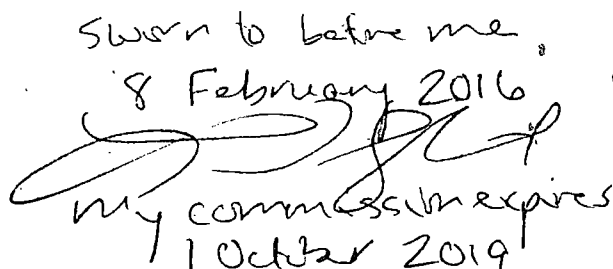 sworn to before me,
8 February 2016
my commission expires
1 October 2019